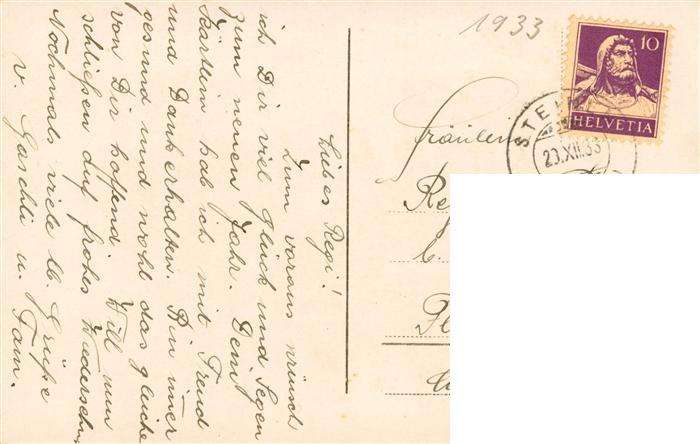 1933
10
HELVETIA
STE
29.XII.33
Fräulein
Re
b.
Fl
Liebes Regi!
Zum voraus wünsch
ich Dir viel Glück und Segen
zum neuen Jahr. Dein
Kärtlein hab ich mit Freud
und Dank erhalten. Bin imer
gesund und wohl das gleiche
von Dir hoffend. Will nun
schließen auf frohes Wiedersehn
Nochmals viele lb. Grüße
v. Gaschli u. Fam.